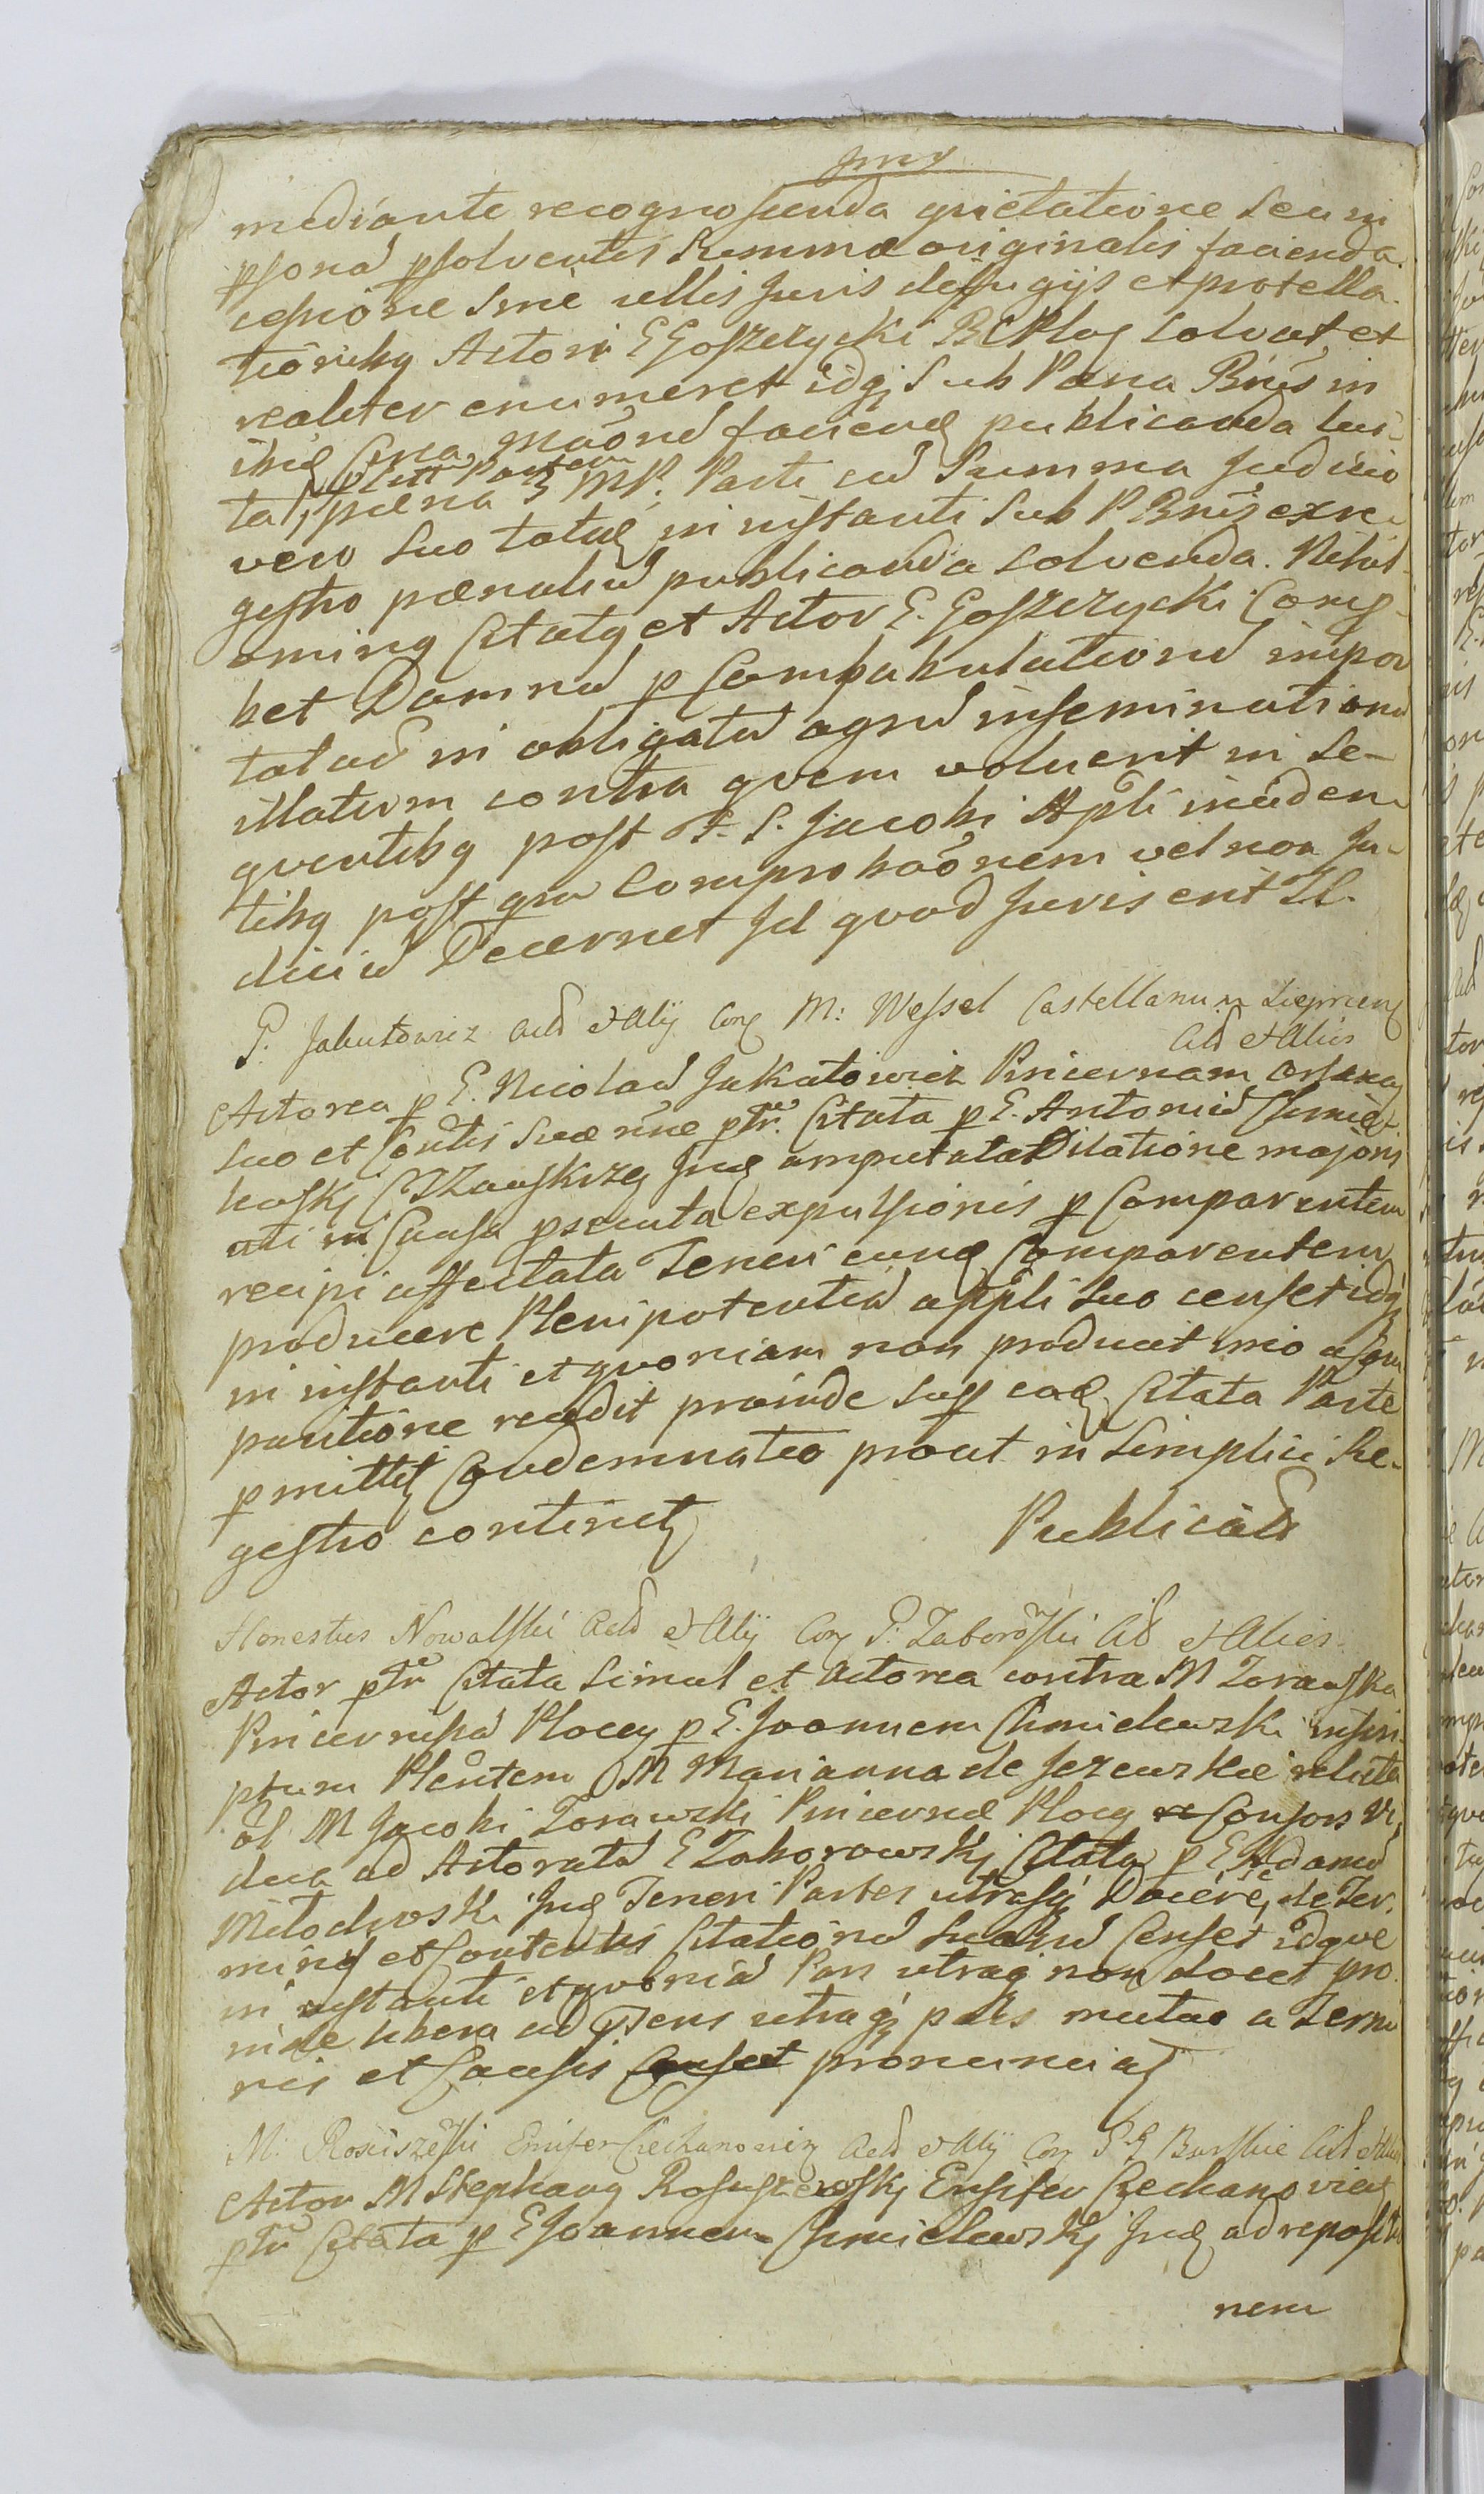 mediante recognoscenda quietatione seu in
psona psolventis Summæ originalis facienda
cessione sine ullis Juris deffugijs et protella-
tionibg Actori E Goszczycki solvat et
realiter enumeret idq Sub Pæna Bnis in
facieñ publicanda luc-
plen Partem
ta, pæna 3 MP. Parti cũ Summa Judicio
vero suo totũ in instanti Sub P Bnis ex re-
gestro pænaliũ publicanda solvenda. Nihil-
oming Citatg et Actor E. Goszczycki
bet Damnũ p Compabulationũ impor
tatũ in obligatũ agrũ inseminationũ
illatum contra quem voluerit in Se-
quentibg post F. S. Jacobi Apli inciden-
tibg post quã Comprobaõnem vel non Ju-
diciũ Decernet Id quod Juris erit
P. Jakutowicz Ad et Alij Con M: Wessel Castellanum
Ad et Alios
Actorea p E. Nicolaũ Jakutowicz Pincernam
suo et Contis suæ nõe ptr. Citata p E. Antoniũ Chmie-
Jud amputata Dilatione majoris
uti in Causa psecuta expulsionis p Comparentem
recipi affectata Teneri eund Comparentem
producere Plenipotentiã appli suo censet idq
in instanti et quoniam non producit imo a Com
paritione recedit proinde sup ead Citata Parte
pmittit Condemnatio prout in Simplici Re-
gestro continet
Publicat
Honestus Nowalski Ad et Alij Con P: Zaborowski Ad et Alios
Actor ptr Citata Simul et Actorea contra M Zorawska
Pincernissã Plocen p E. Joannem Chmielewski inscri-
ptum Plentem M Marianna de Jezewskie relicta
ol. M Jacobi Zorawski Pincernæ Plocen Consors Vi-
dua ad Actoratũ E Zaborowski Citata p E Adamũ
Młochoski Jud Teneri Partes utrasq Docere de Ter-
minis et Contentis Citationũ suarũ Censet idque
in instanti et quoniã Pars utraq non docet pro
inde libera ad psens utraq pars mutuo a Termi
nis et Causis Censet pronunciat
M: Rosciszewski Ensifer Ciechanovien Ad et Alij Con P.P. Burskie Ad et Alios
Actor M Stephang Rosciszewski Ensifer Ciechanovien
ptr Citata p E Joannem Chmielewski Jud ad repositio
nem